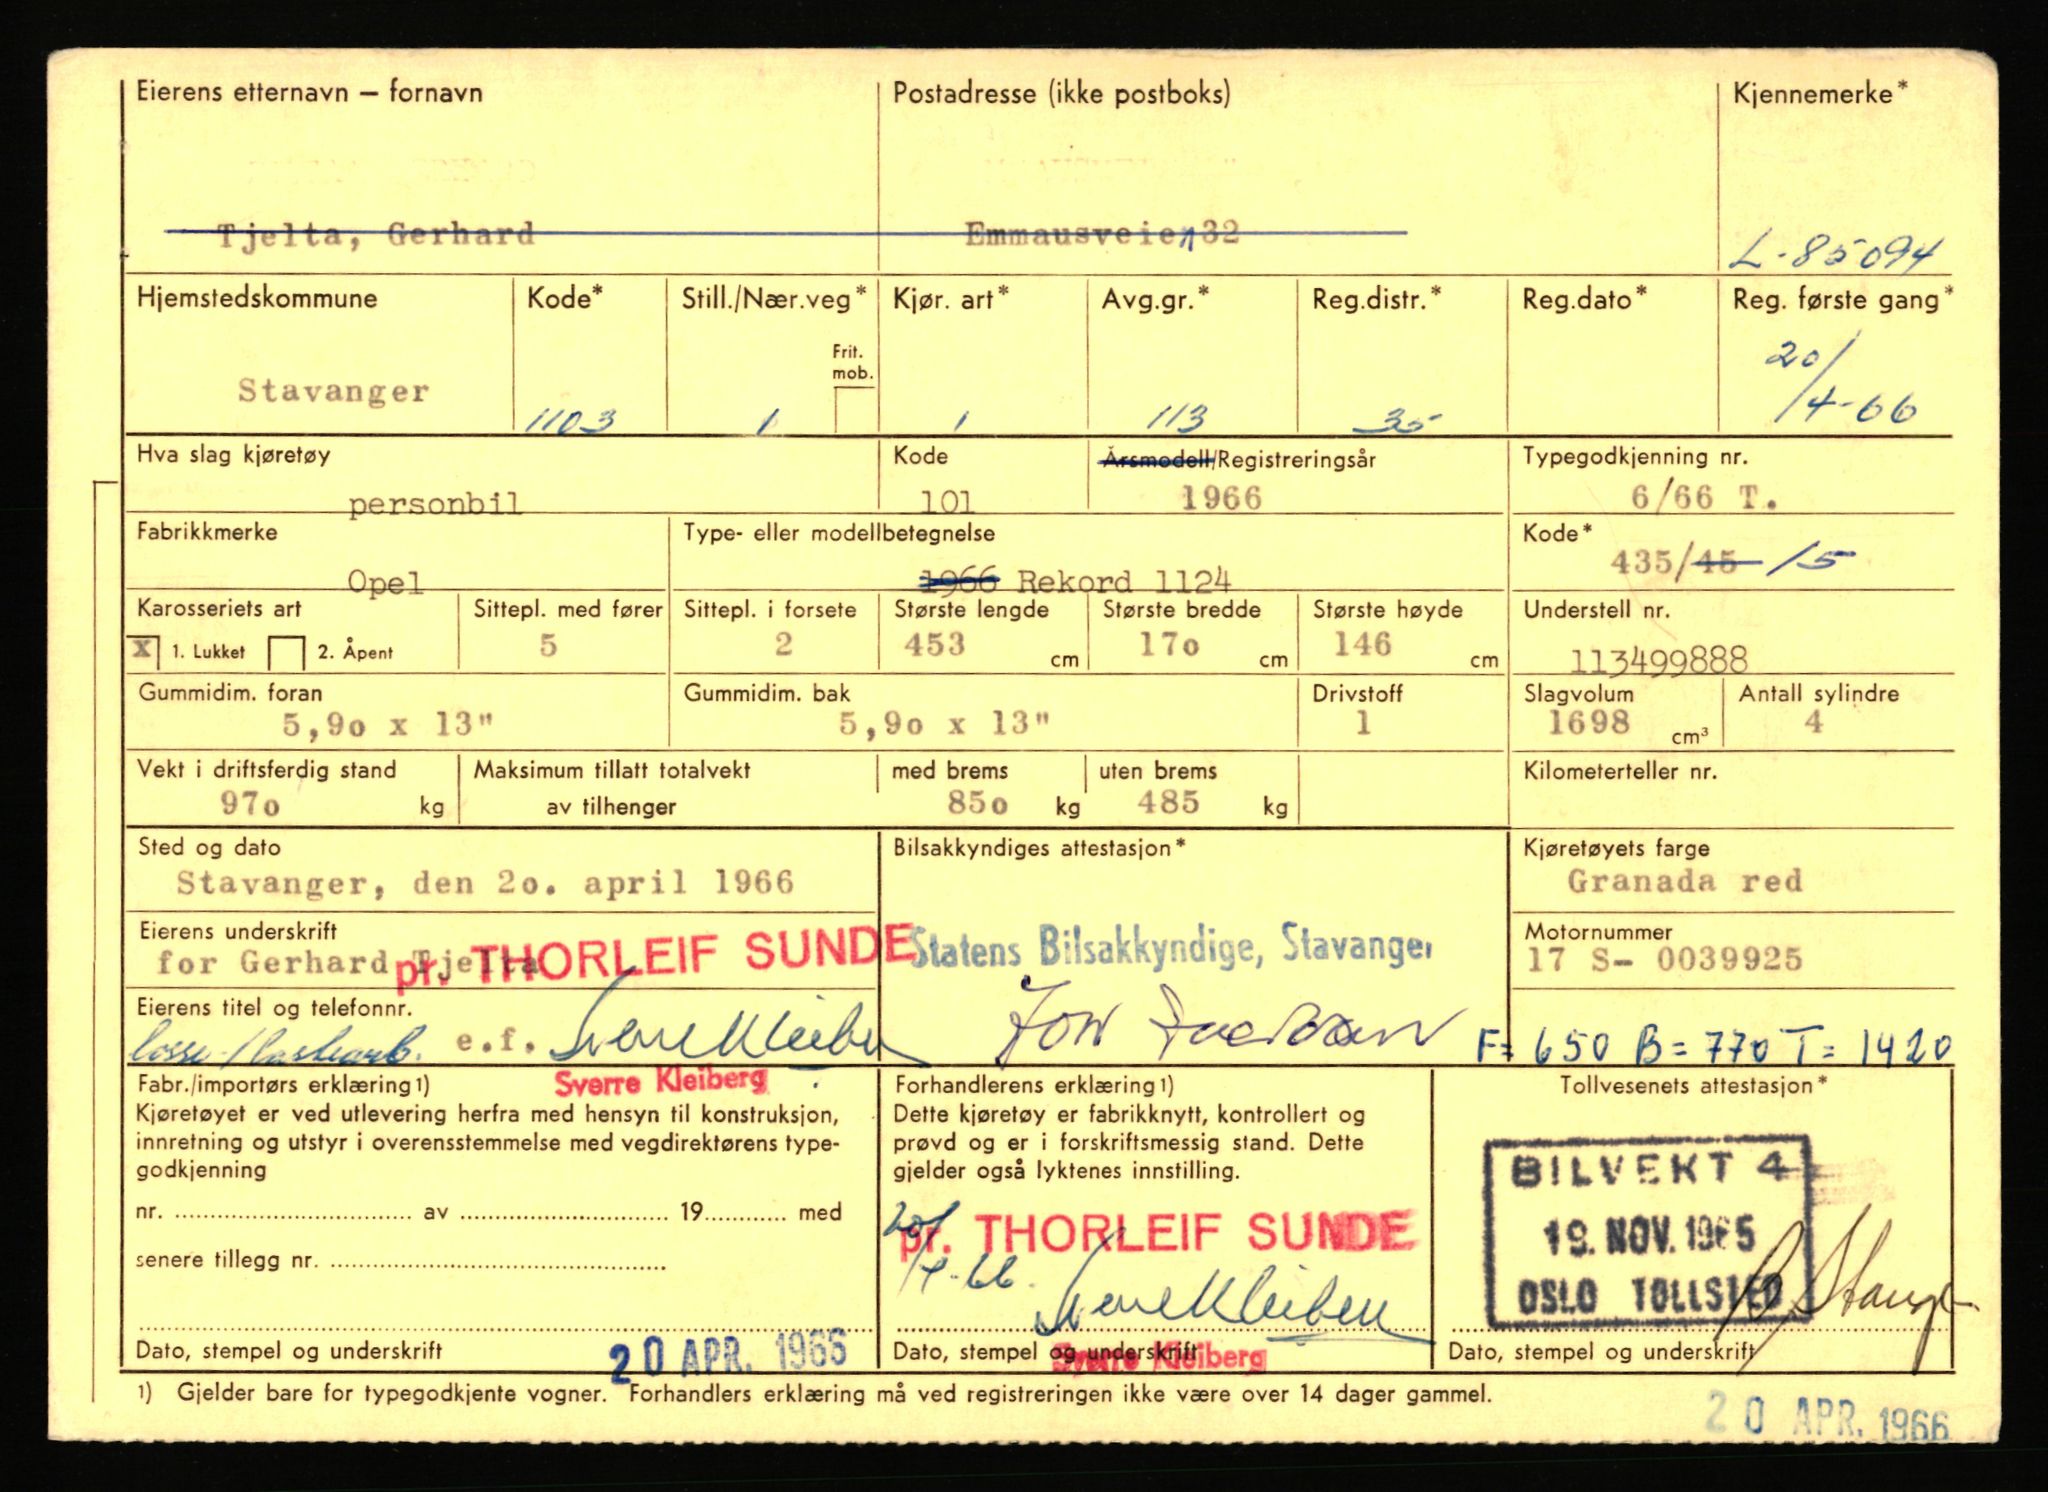 Eierens etternavn – fornavn Postadresse (ikke postboks) Kjennemerke*
Tjelta, Gerhard Emmausveien 32 L-85094
Hjemstedskommune Kode* Still./Nær.veg* Kjør. art* Avg.gr.* Reg.distr.* Reg.dato* Reg. første gang*
Frit. mob.
Stavanger 1103 1 1 113 35 20/4-66
Hva slag kjøretøy Kode Årsmodell/Registreringsår Typegodkjenning nr.
personbil 101 1966 6/66 T.
Fabrikkmerke Type- eller modellbetegnelse Kode*
Opel 1966 Rekord 1124 435/45 /5
Karosseriets art Sittepl. med fører Sittepl. i forsete Største lengde Største bredde Største høyde Understell nr.
x 1. Lukket 2. Åpent 5 2 453 cm 17o cm 146 cm 113499888
Gummidim. foran Gummidim. bak Drivstoff Slagvolum Antall sylindre
5,9o x 13" 5,9o x 13" 1 1698 cm³ 4
Vekt i driftsferdig stand Maksimum tillatt totalvekt med brems uten brems Kilometerteller nr.
97o kg av tilhenger 85o kg 485 kg
Sted og dato Bilsakkyndiges attestasjon* Kjøretøyets farge
Stavanger, den 2o. april 1966 Granada red
Eierens underskrift Motornummer
for Gerhard Tjelta pr. THORLEIF SUNDE Statens Bilsakkyndige, Stavanger 17 S- 0039925
Eierens titel og telefonnr.
e.f. Sverre Kleiberg F= 650 B= 770 T= 1420
Sverre Kleiberg
Fabr./importørs erklæring 1) Forhandlerens erklæring 1) Tollvesenets attestasjon*
Kjøretøyet er ved utlevering herfra med hensyn til konstruksjon, Dette kjøretøy er fabrikknytt, kontrollert og
innretning og utstyr i overensstemmelse med vegdirektørens type- prøvd og er i forskriftsmessig stand. Dette
godkjenning gjelder også lyktenes innstilling.
BILVEKT 4
nr. av 19 med 20/4-66 pr. THORLEIF SUNDE 19. NOV. 1965
senere tillegg nr. Sverre Kleiberg OSLO TOLLSTED
Dato, stempel og underskrift 20 APR. 1966 Dato, stempel og underskrift Sverre Kleiberg Dato, stempel og underskrift
1) Gjelder bare for typegodkjente vogner. Forhandlers erklæring må ved registreringen ikke være over 14 dager gammel.
20 APR. 1966